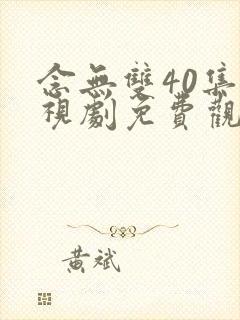 念無雙40集
視劇免費觀
黃斌